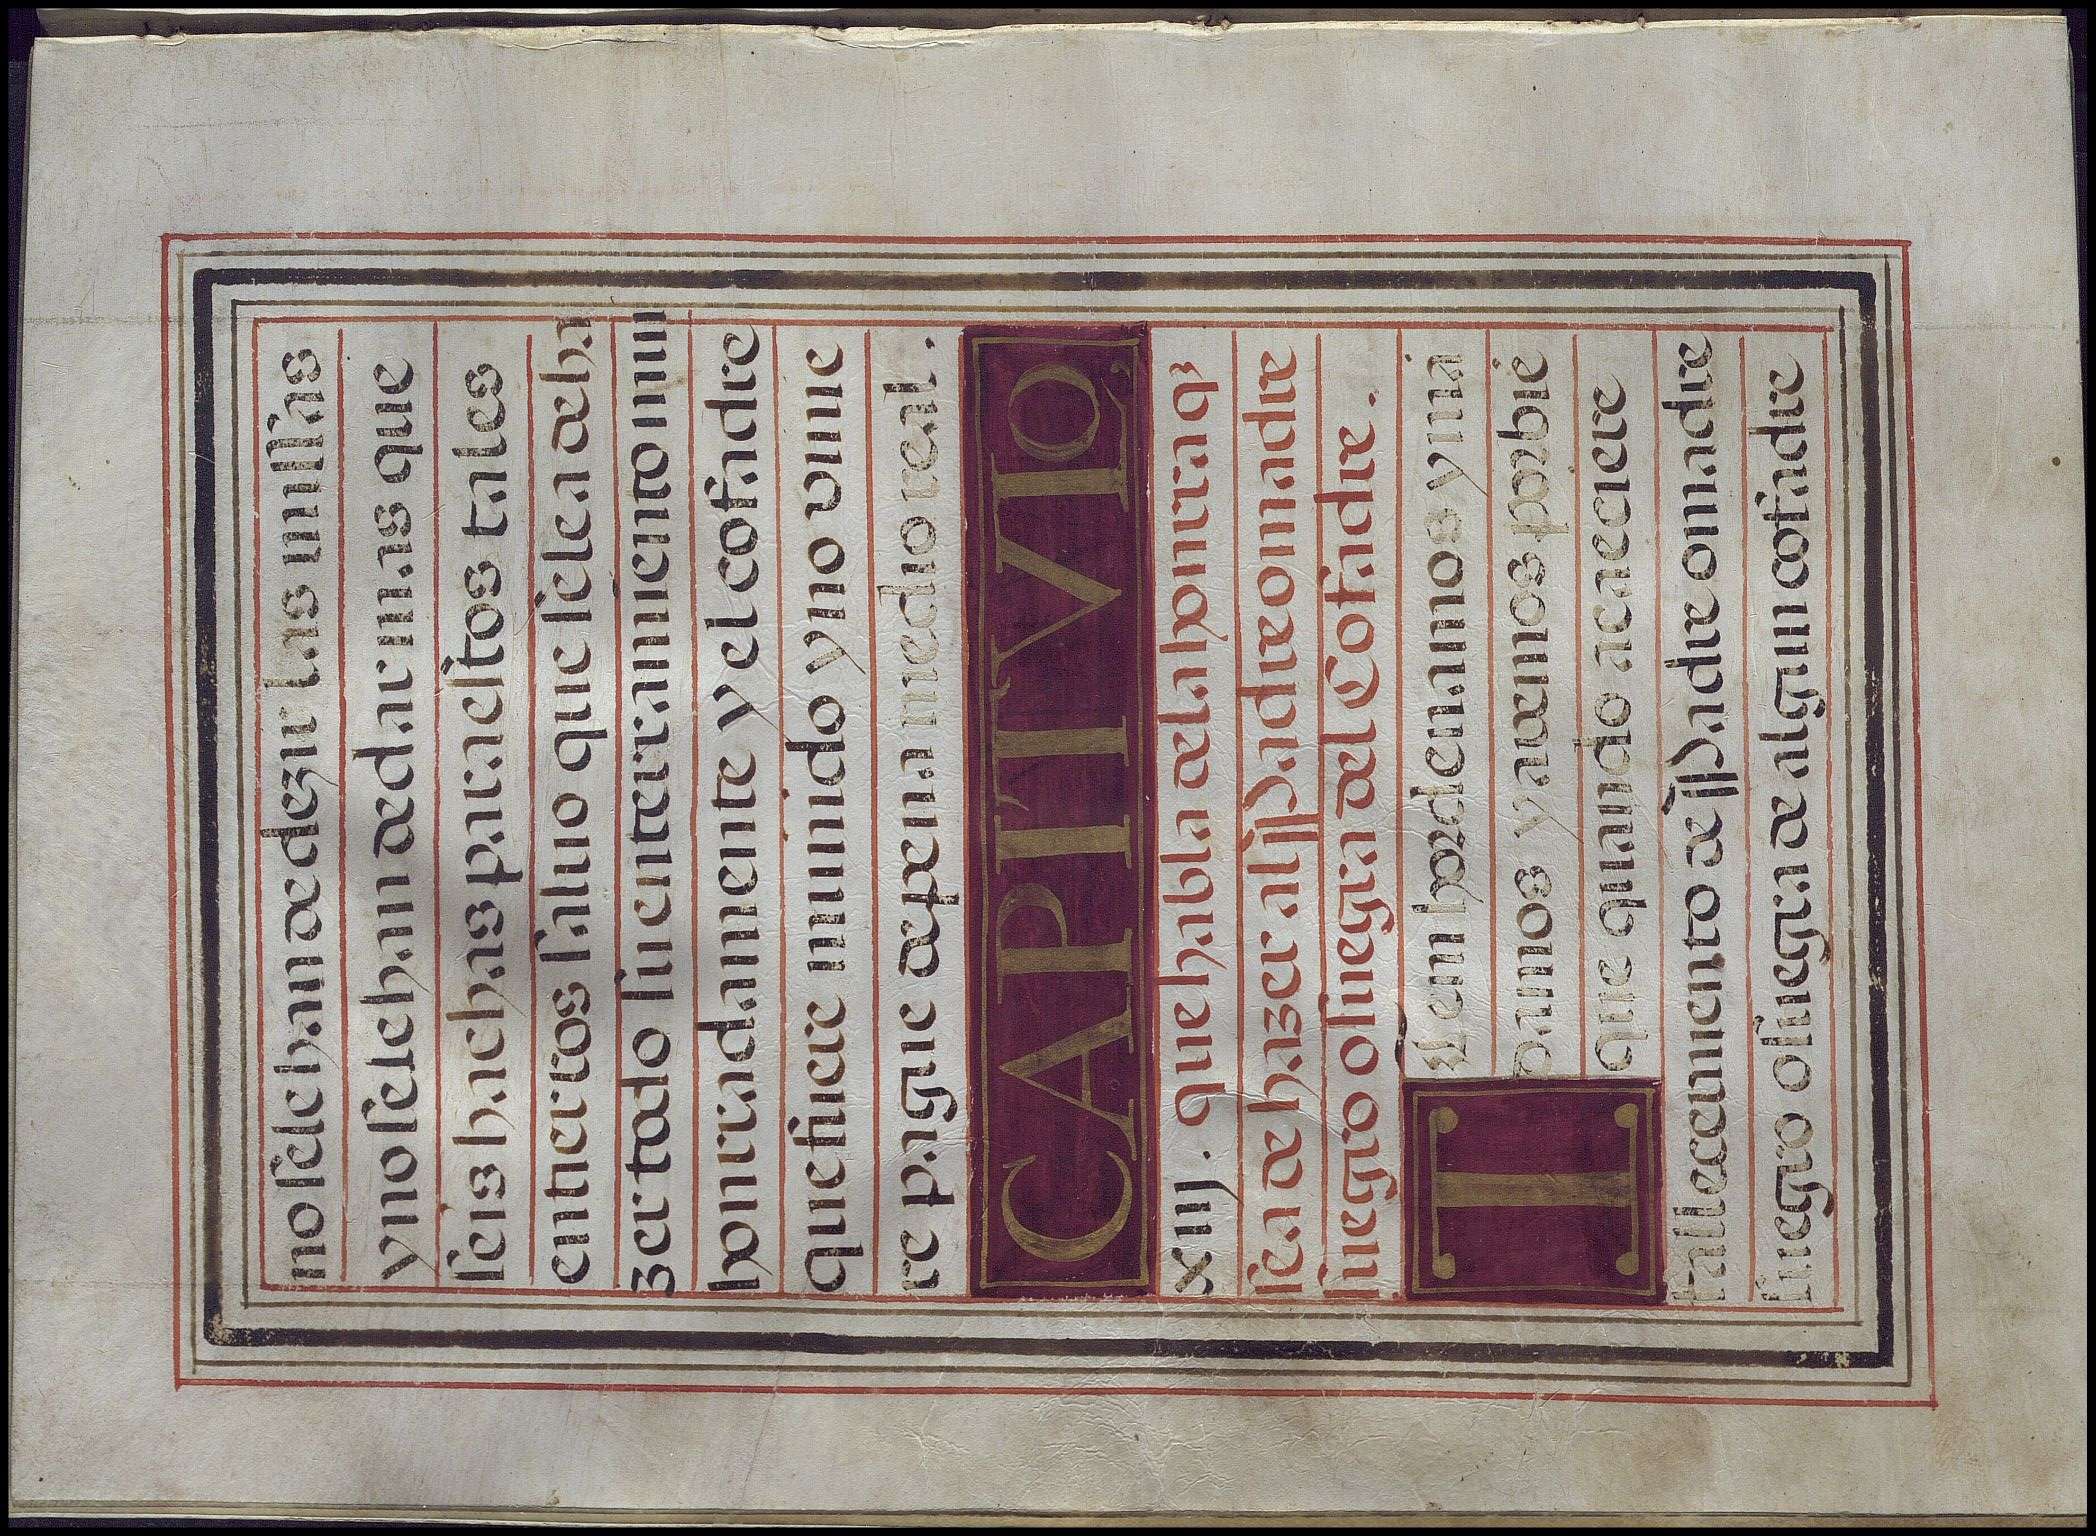 no se le han de dezir las missas
y no se le han de dar mas que
seis hachas para estos tales
entierros saluo que se le a de ha
zer todo su enterramiento mui
honrradamente y el cofadre
que fuere munido y no vinie
re pague de pena medio real.
CAPITVLO,
xiiij. que habla de la honrra q̃
sea de hazer al ss Padre o madre
suegro o suegra del Cofadre.
Item hordenamos y ma
namos y auemos por bie
que quando acaeciere
fallecemiento de ss Padre o madre
suegro o suegra de algun cofadre